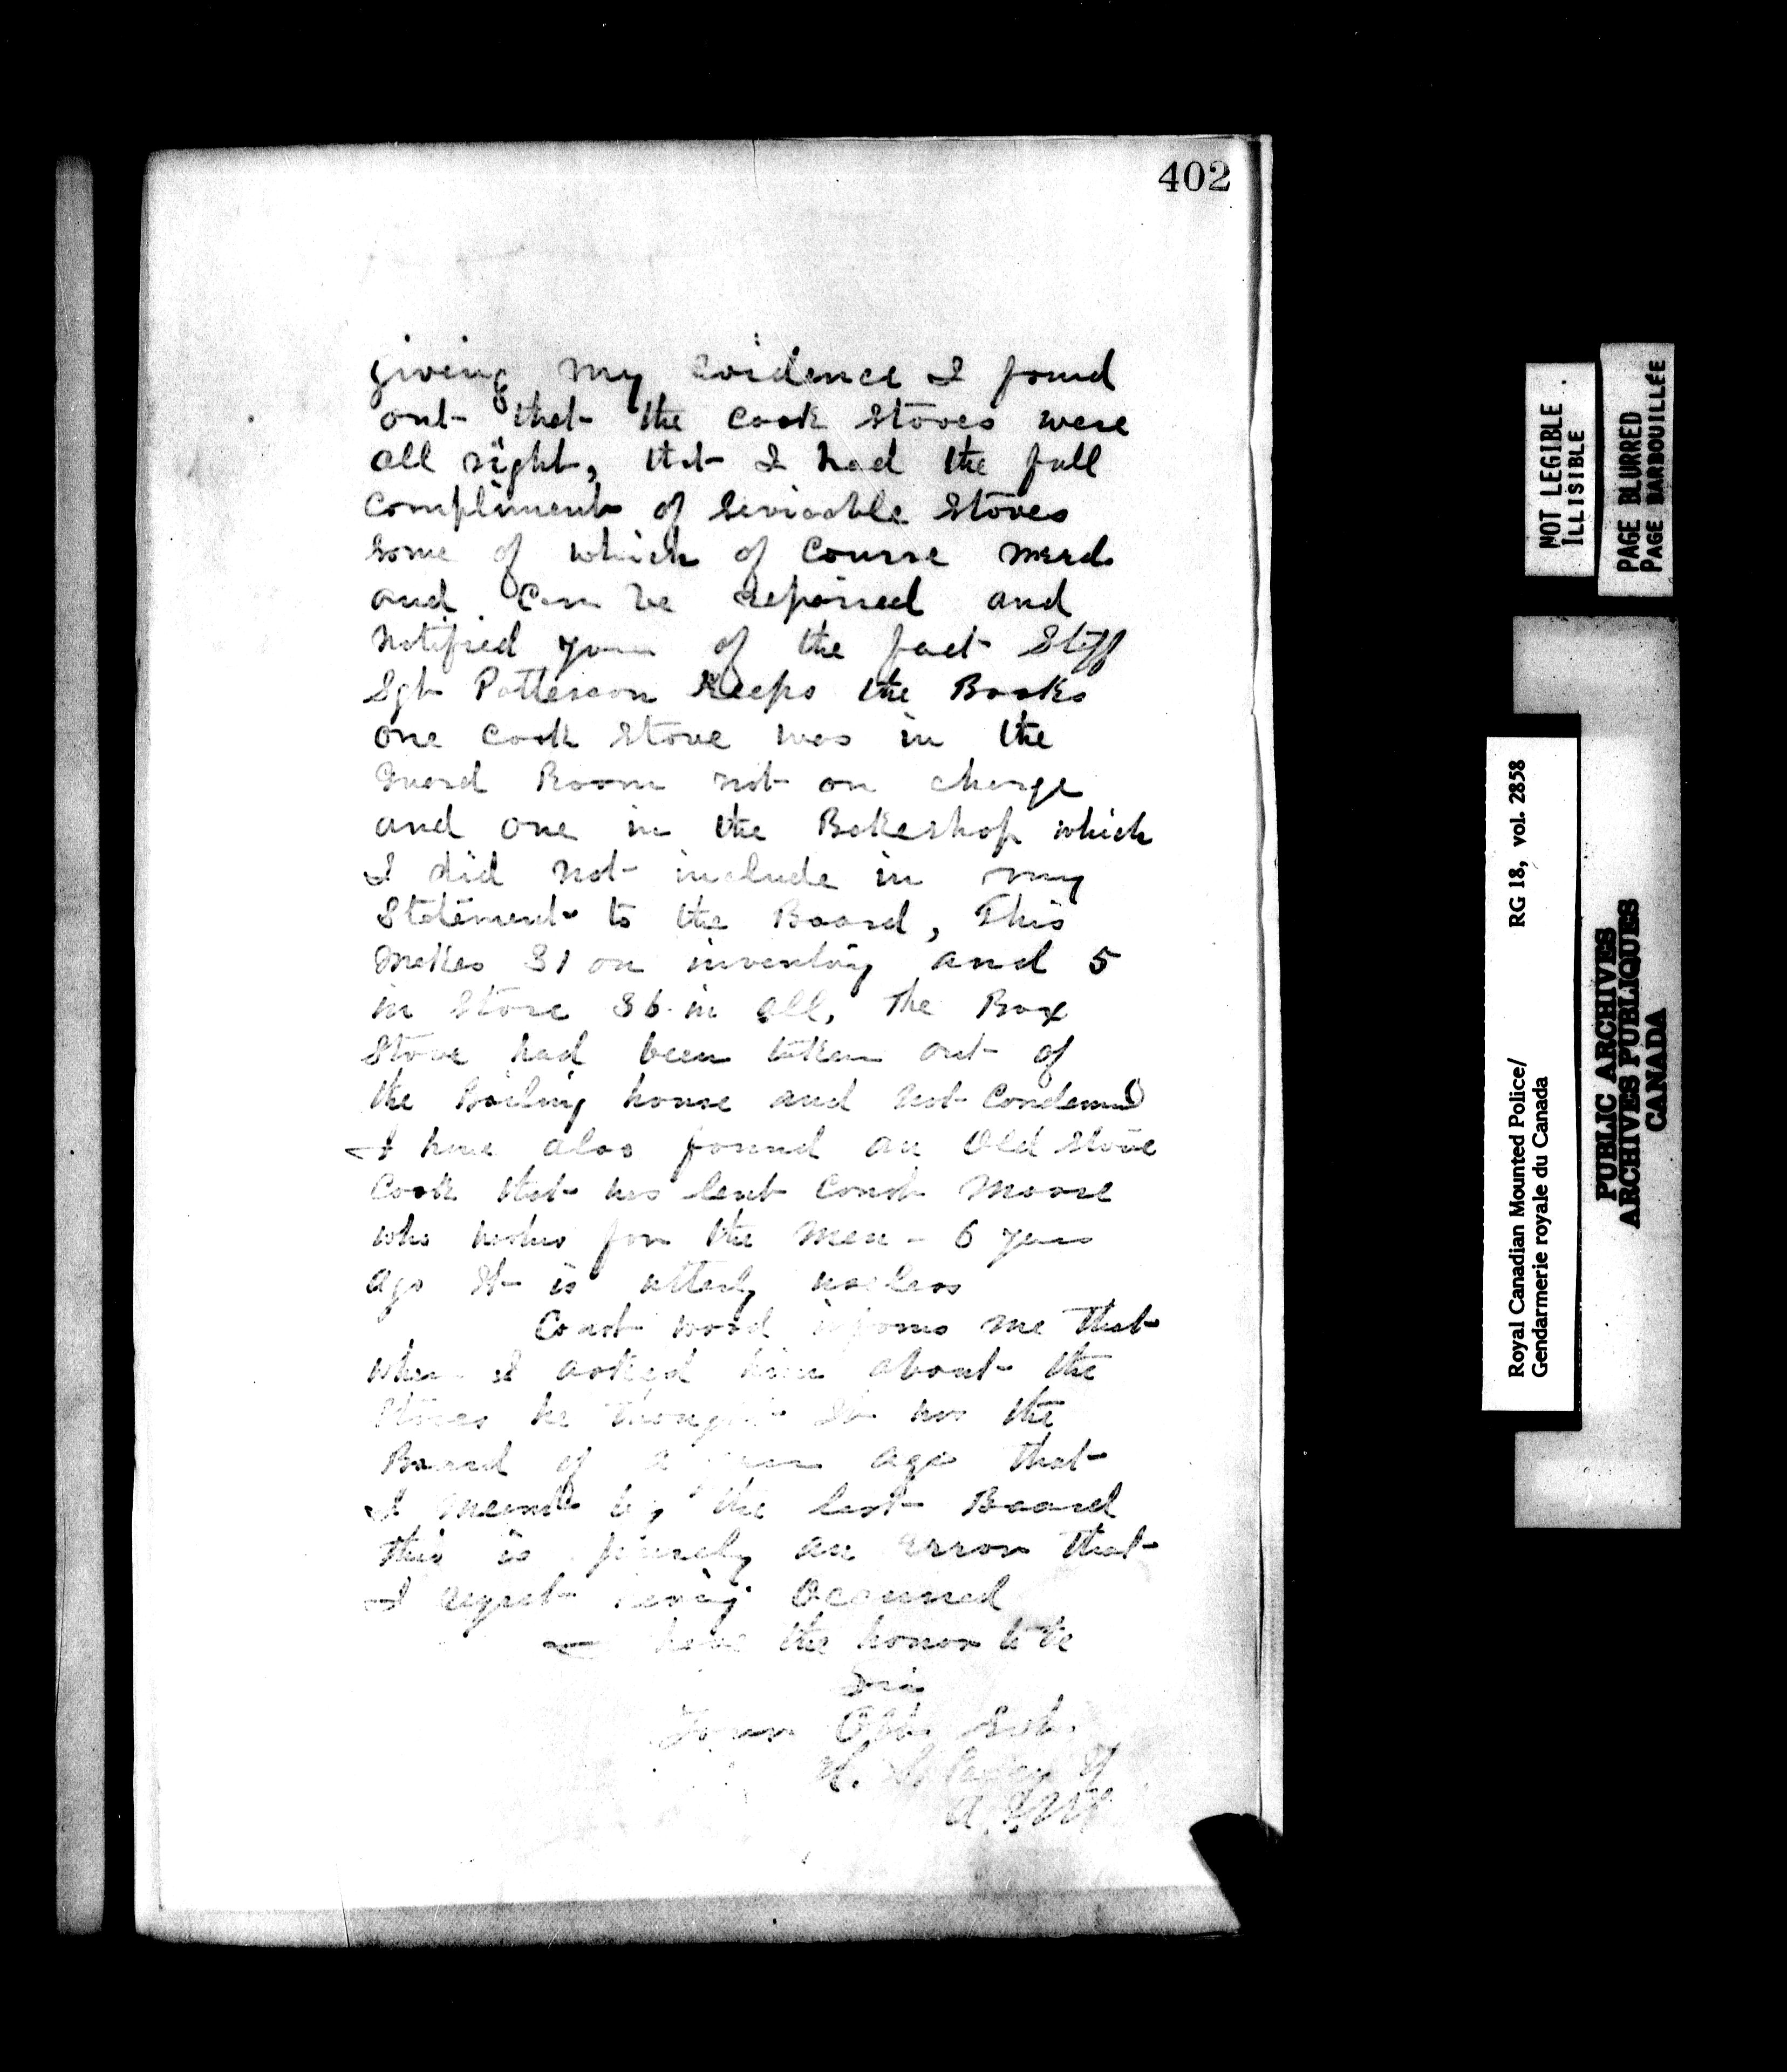 402
giving my evidence I found
out that the Cook Stoves were
all right, that I had the full
Compliment of Servicable Stoves
some of which of Course need
and can be repaired and
notified you of the fact Staff
Sgt Patterson Keeps the Books
one Cook Stove was in the
Guard Room not on charge
and one in the Bakeshop which
I did not include in my
Statement to the Board, This
makes 31 on inventory and 5
in Store 36 in all, The Box
Stove had been taken out of
the Boiling house and not Condemnd
I have also found an Old Stove
Cook that was lent Const Moore
who washes for the men - 6 years
ago It is utterly useless
Const Wood informs me that
when I asked him about the
Stoves he thought it was the
Board of a year ago that
I meant by the last Board
this is purely an error that
I regret having Occurred
I have the honor to be
Sir
Your Obt Svt.
NOT LEGIBLE
ILLISIBLE
PAGE BLURRED
PAGE BARBOUILLÉE
Royal Canadian Mounted Police/ RG 18, vol. 2858
Gendarmerie royale du Canada
PUBLIC ARCHIVES
ARCHIVES PUBLIQUES
CANADA